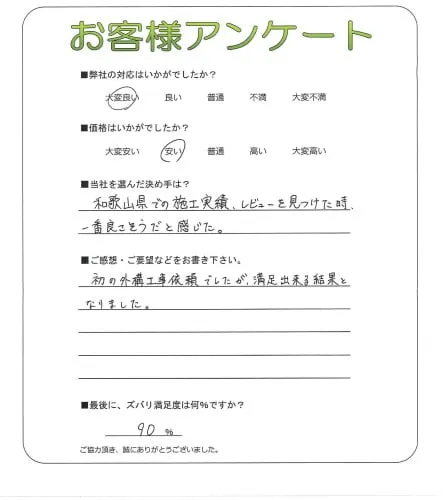 お客様アンケート
■弊社の対応はいかがでしたか?
大変良い 良い 普通 不満 大変不満
■価格はいかがでしたか?
大変安い 安い 普通 高い 大変高い
■当社を選んだ決め手は?
和歌山県での施工実績、レビューを見つけた時、
一番良さそうだと感じた。
■ご感想・ご要望などをお書き下さい。
初の外構工事依頼でしたが、満足出来る結果と
なりました。
■最後に、ズバリ満足度は何%ですか?
90 %
ご協力頂き、誠にありがとうございました。